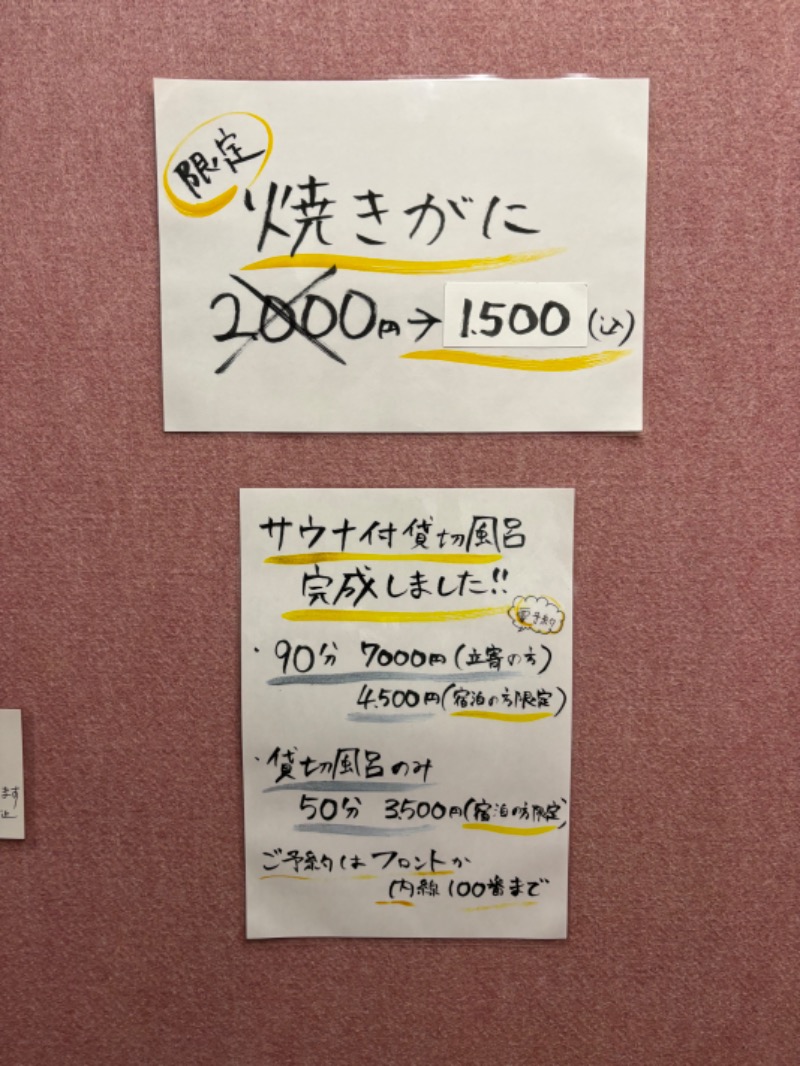 限定
焼きがに
2000円→1.500(込)
サウナ付貸切風呂
完成しました!!
要予約
・90分 7000円(立寄の方)
4.500円(宿泊の方限定)
・貸切風呂のみ
50分 3.500円(宿泊の方限定)
ご予約はフロントか
内線100番まで
ます